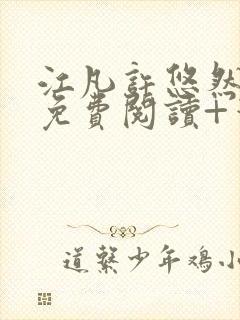 江凡許悠然
免費閱讀+
道繫少年鸡小